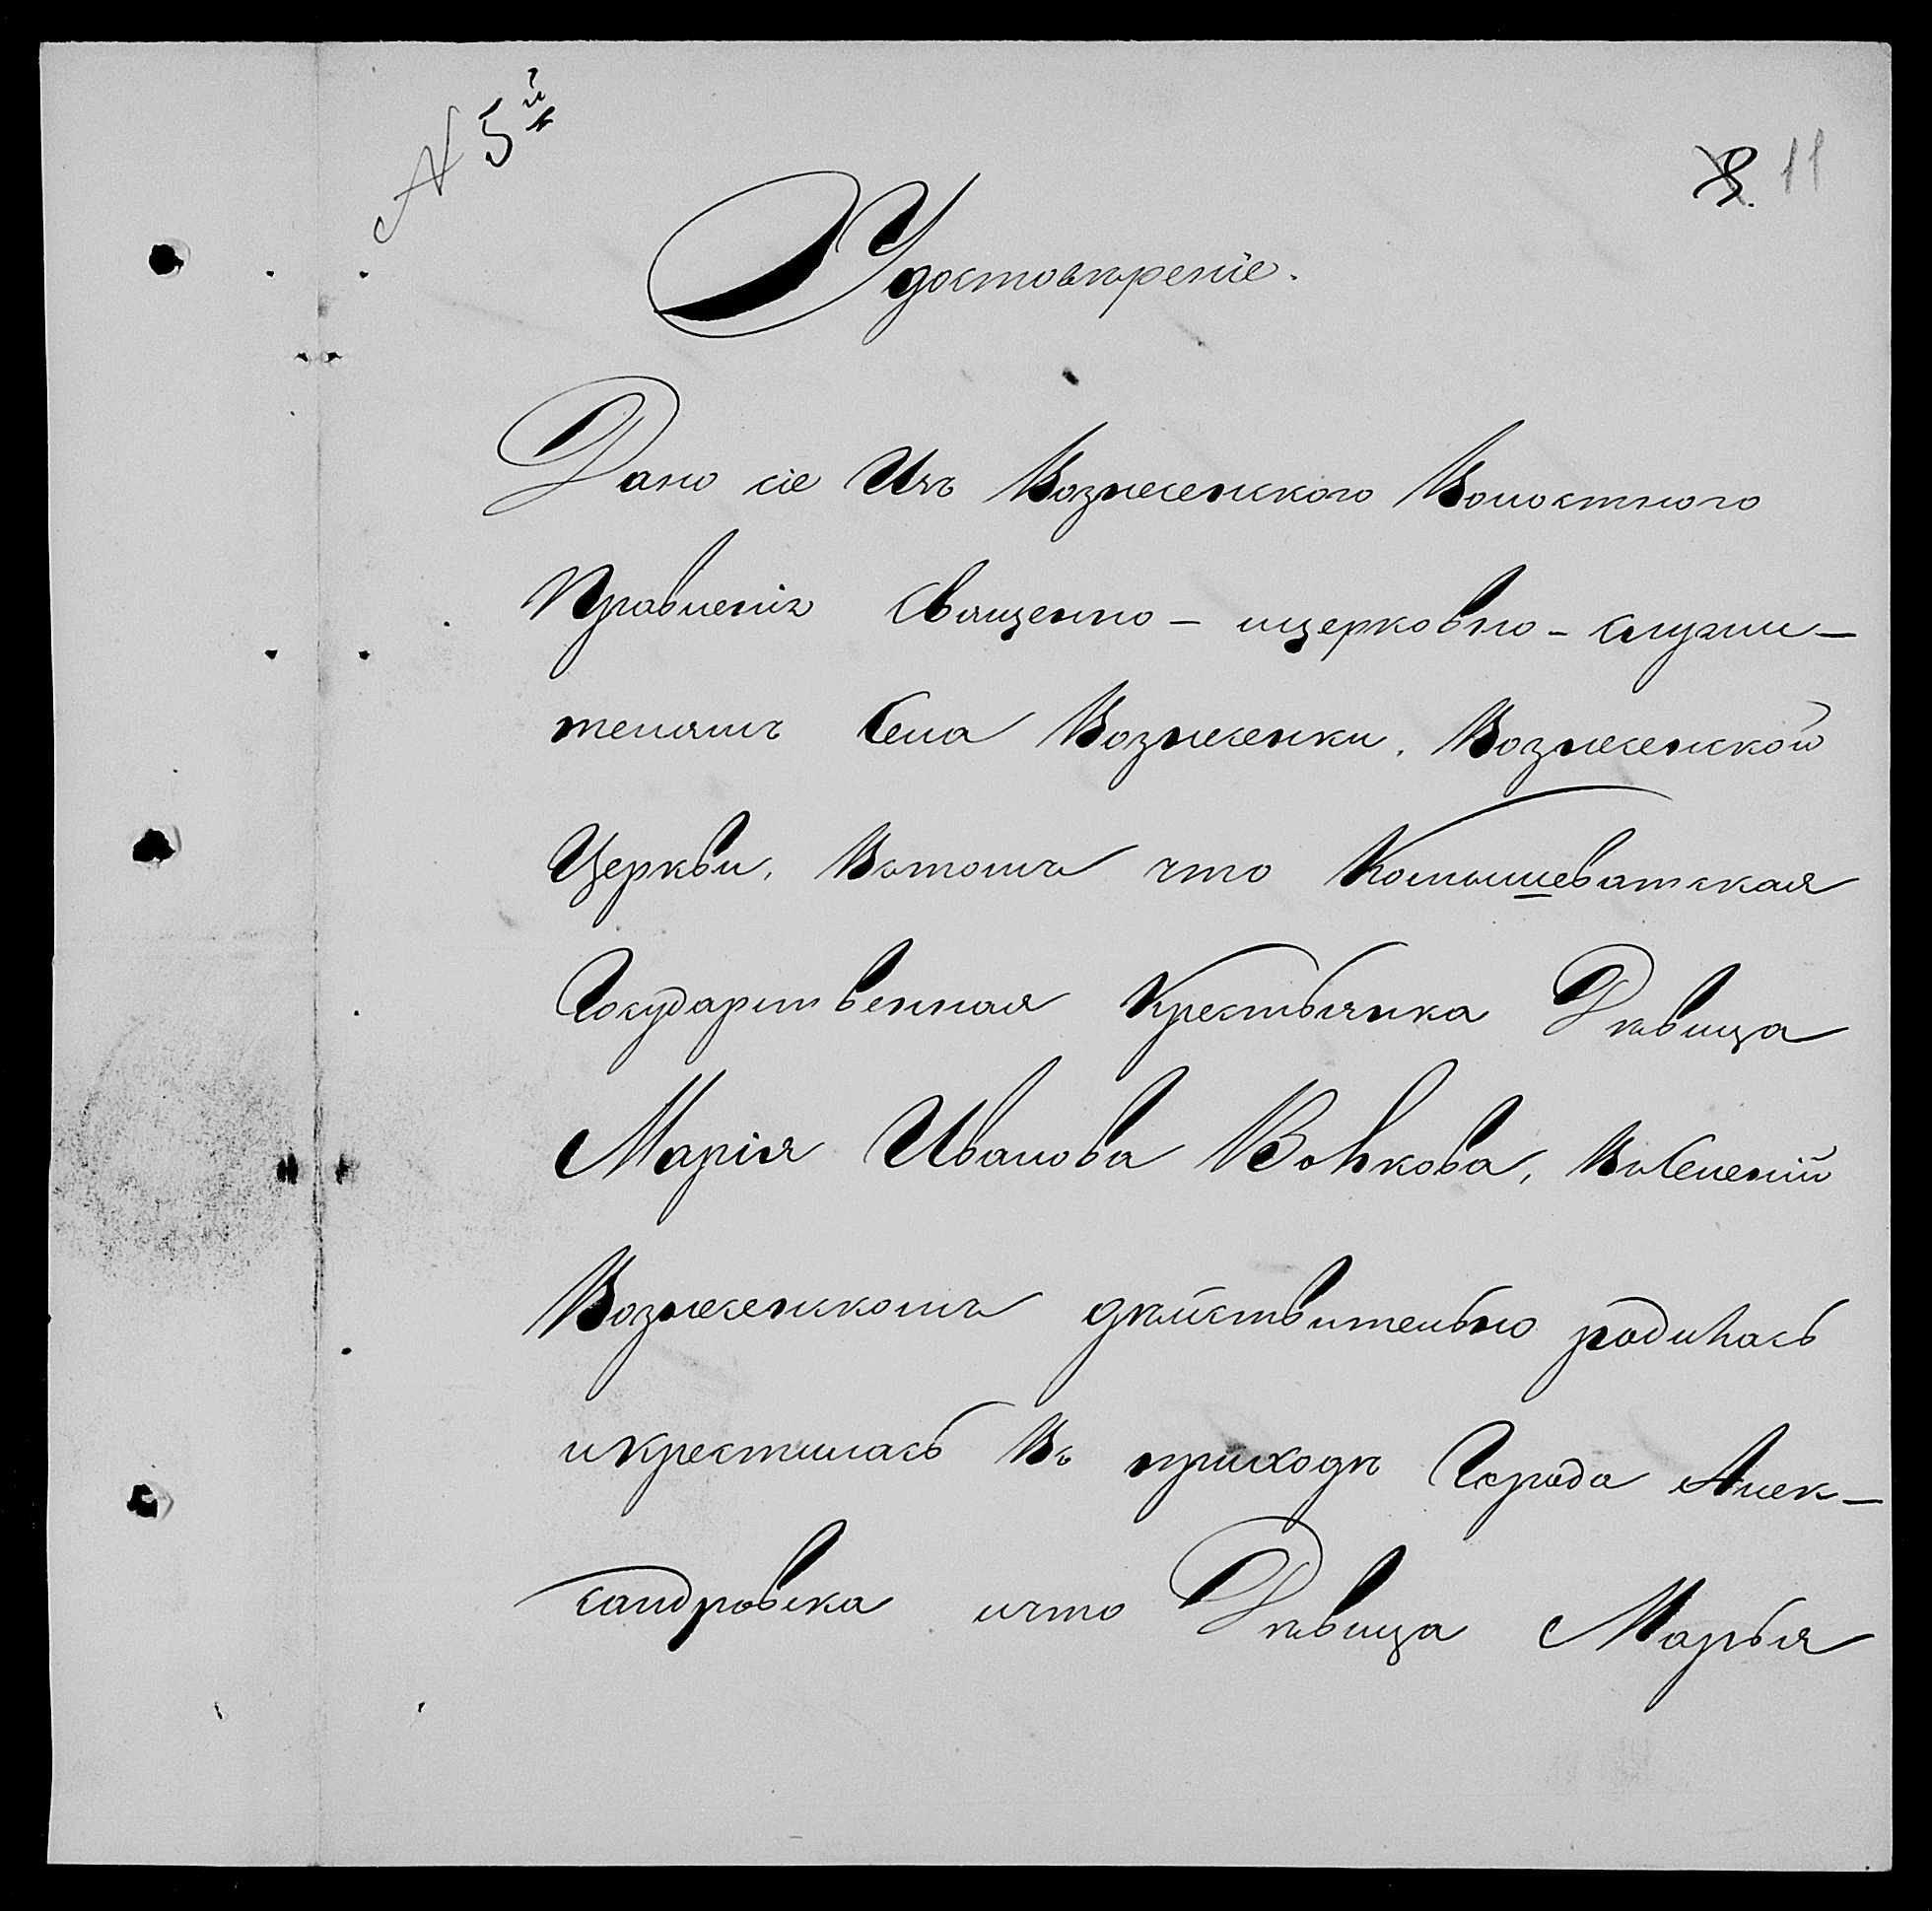 № 5й
8. 11
Удостовѣреніе.
Дано сіе Изъ Вознесенского Волостного
Правленія Священно - ицерковно - служи-
телямъ Села Вознесенки, Вознесенской
Церкви, Вътомъ что Комышеватская
Государственная Крестьянка Дѣвица
Марія Иванова Волкова, ВъСеленіи
Вознесенскомъ дѣйствительно родилась
икрестилась Въ приходѣ Города Алек-
сандровска ичто Дѣвица Марья